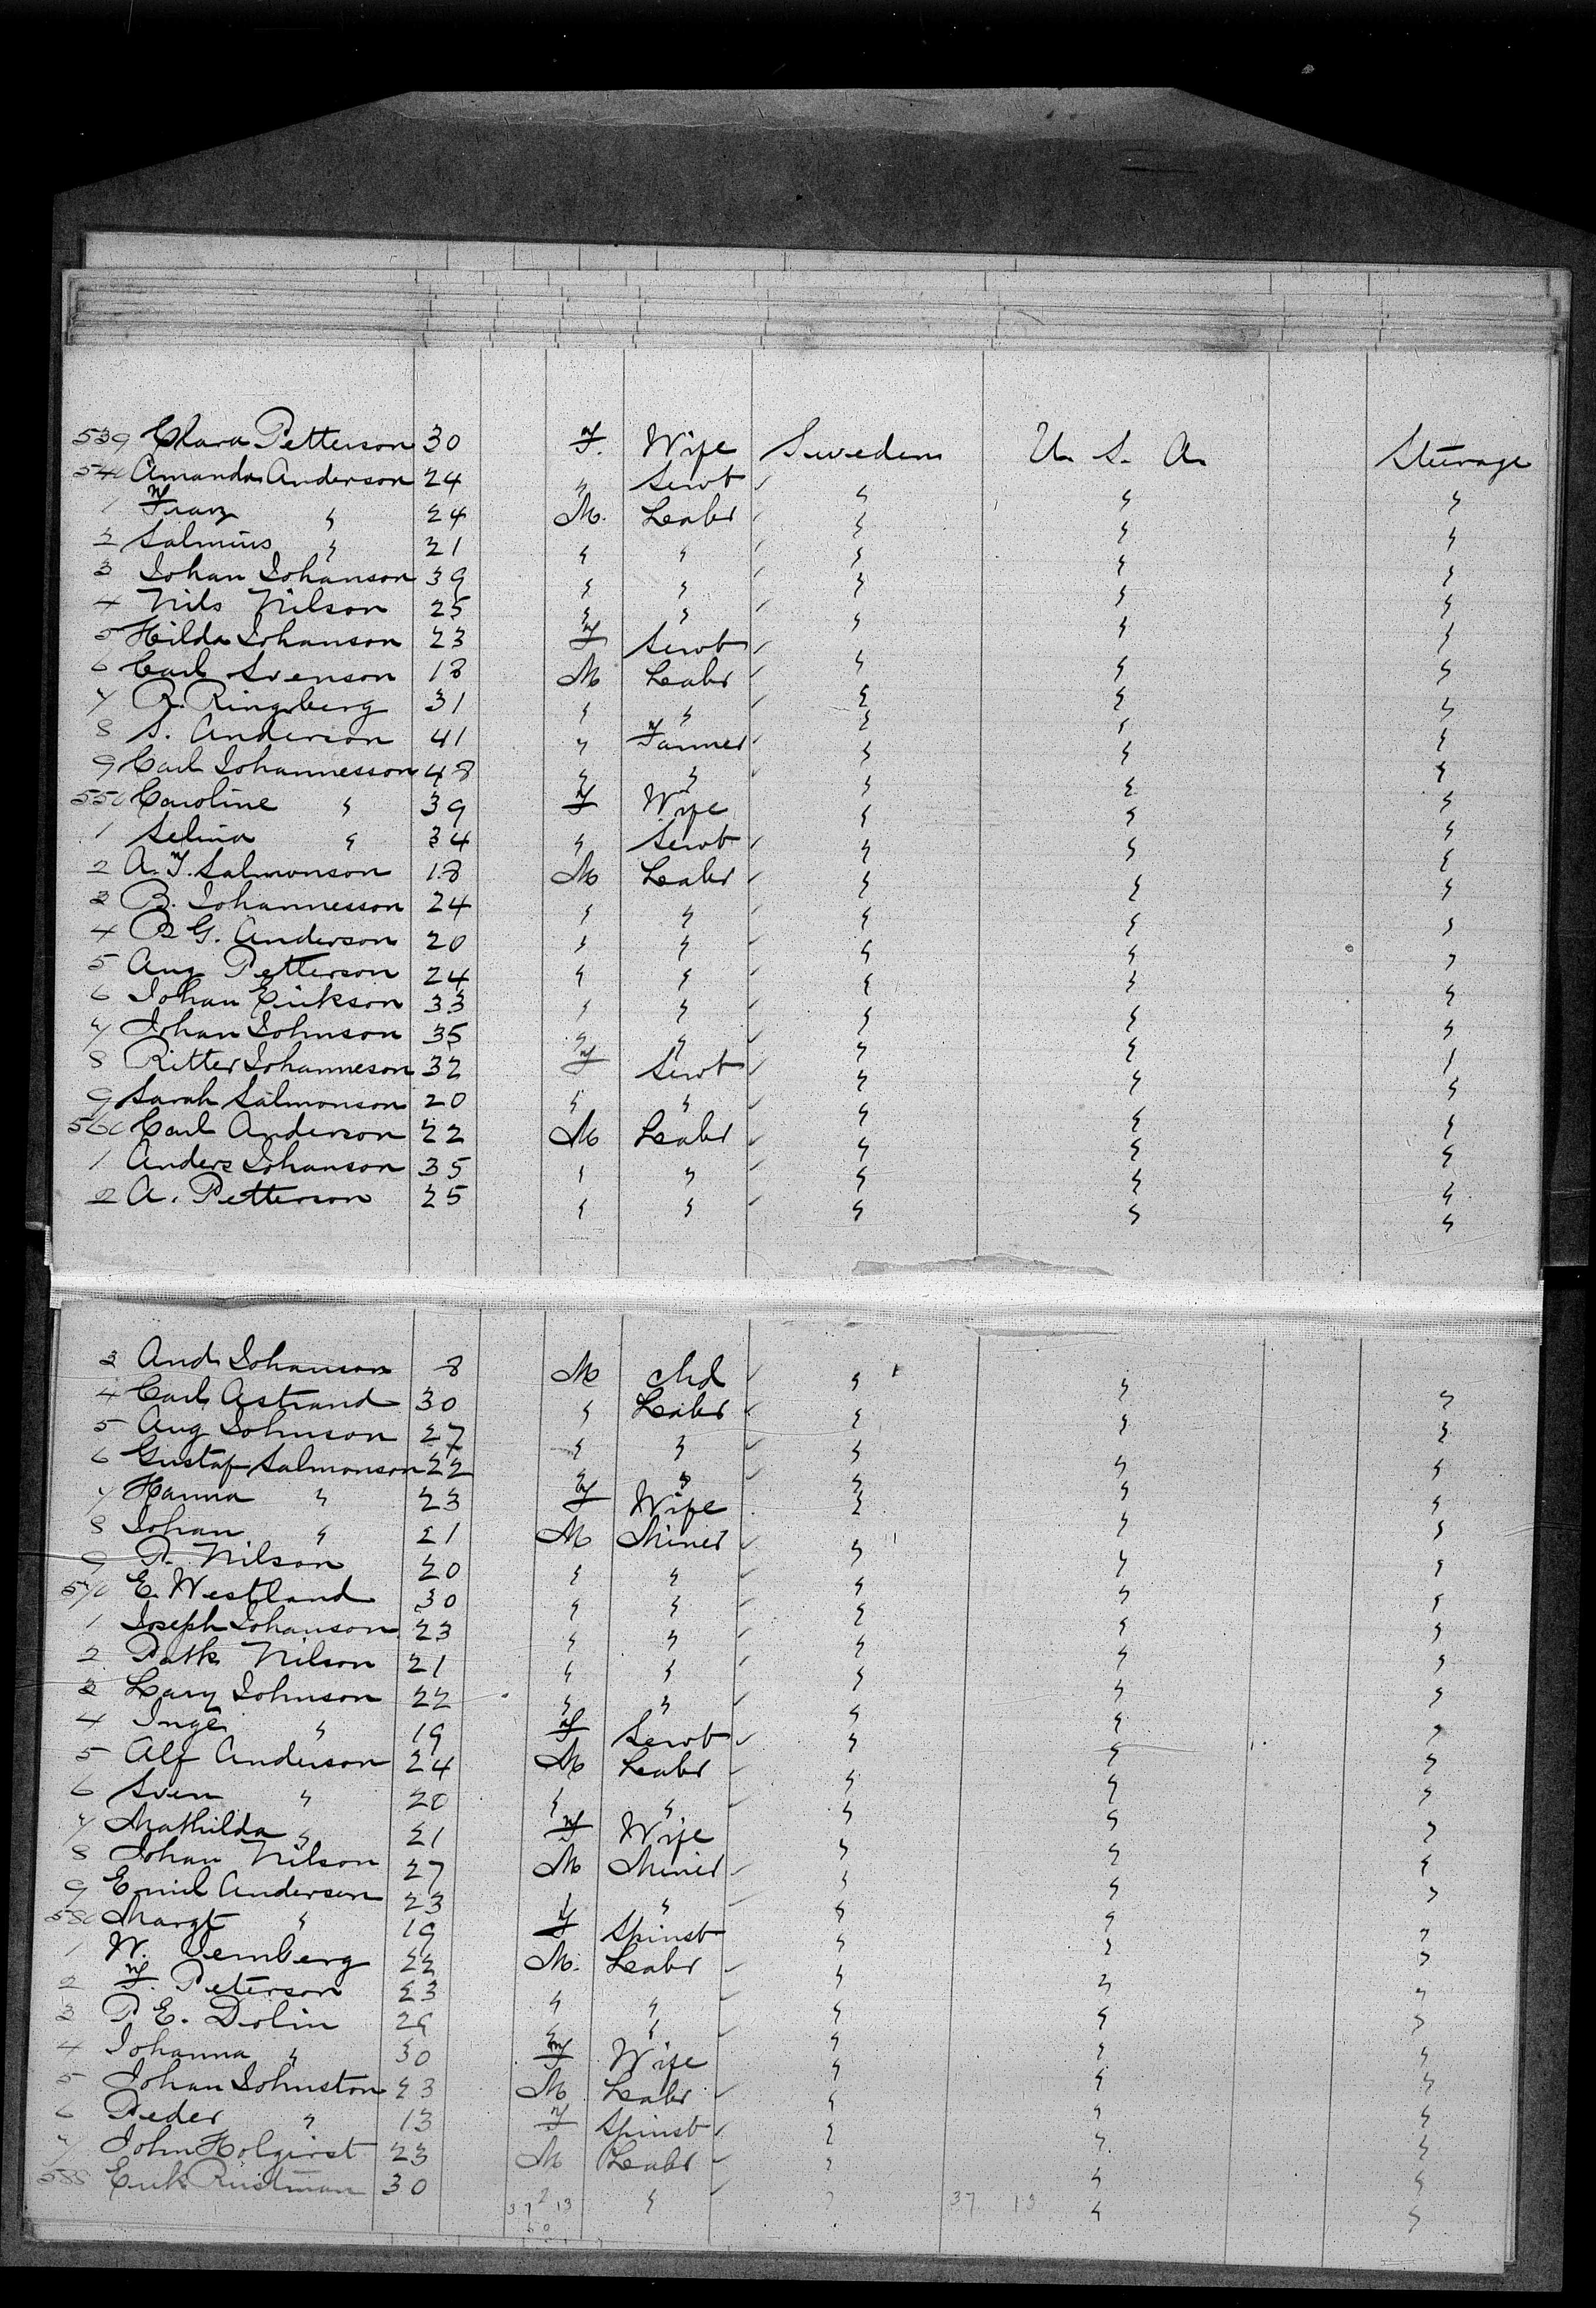 539 Clara Petterson 30 F. Wife Sweden U. S. A. Steerage
540 Amanda Anderson 24 " Servt " " "
1 Franz " 24 M. Labr " " "
2 Salmins " 21 " " " " "
3 Johan Johanson 39 " " " " "
4 Nils Nilson 25 " " " " "
5 Hilda Johanson 23 F Servt " " "
6 Carl Svenson 18 M Labr " " "
7 R. Ringsberg 31 " " " " "
8 S. Anderson 41 " Farmer " " "
9 Carl Johannesson 48 " " " " "
550 Caroline " 39 F Wife " " "
1 Selina " 34 " Servt " " "
2 A. F. Salmonson 18 M Labr " " "
3 B. Johannesson 24 " " " " "
4 P G. Anderson 20 " " " " "
5 Aug Petterson 24 " " " " "
6 Johan Erikson 33 " " " " "
7 Johan Johnson 35 " " " " "
8 Ritter Johanneson 32 F Servt " " "
9 Sarah Salmonson 20 " " " " "
560 Carl Anderson 22 M Labr " " "
1 Anders Johanson 35 " " " " "
2 A. Petterson 25 " " " " "
3 And Johanson 8 M Chd " " "
4 Carl Astrand 30 " Labr " " "
5 Aug Johnson 27 " " " " "
6 Gustaf Salmonson 22 " " " " "
7 Hanna " 23 F Wife " " "
8 Johan " 21 M Miner " " "
9 P. Nilson 20 " " " " "
570 E. Westland 30 " " " " "
1 Joseph Johanson 23 " " " " "
2 Patk Nilson 21 " " " " "
3 Lary Johnson 22 " " " " "
4 Inge " 19 F Servt " " "
5 Alf Anderson 24 M Labr " " "
6 Sven " 20 " " " " "
7 Mathilda " 21 F Wife " " "
8 Johan Nilson 27 M Miner " " "
9 Emil Anderson 23 " " " " "
580 Margt " 19 F Spinst " " "
1 W. Ternberg 22 M. Labr " " "
2 F. Peterson 23 " " " " "
3 P E. Dolin 29 " " " " "
4 Johanna " 30 F Wife " " "
5 Johan Johnston 23 M Labr " " "
6 Peder " 13 F Spinst " " "
7 John Holgirst 23 M Labr " " "
588 Erik 30 " " " "
37 2 13 37 13
50